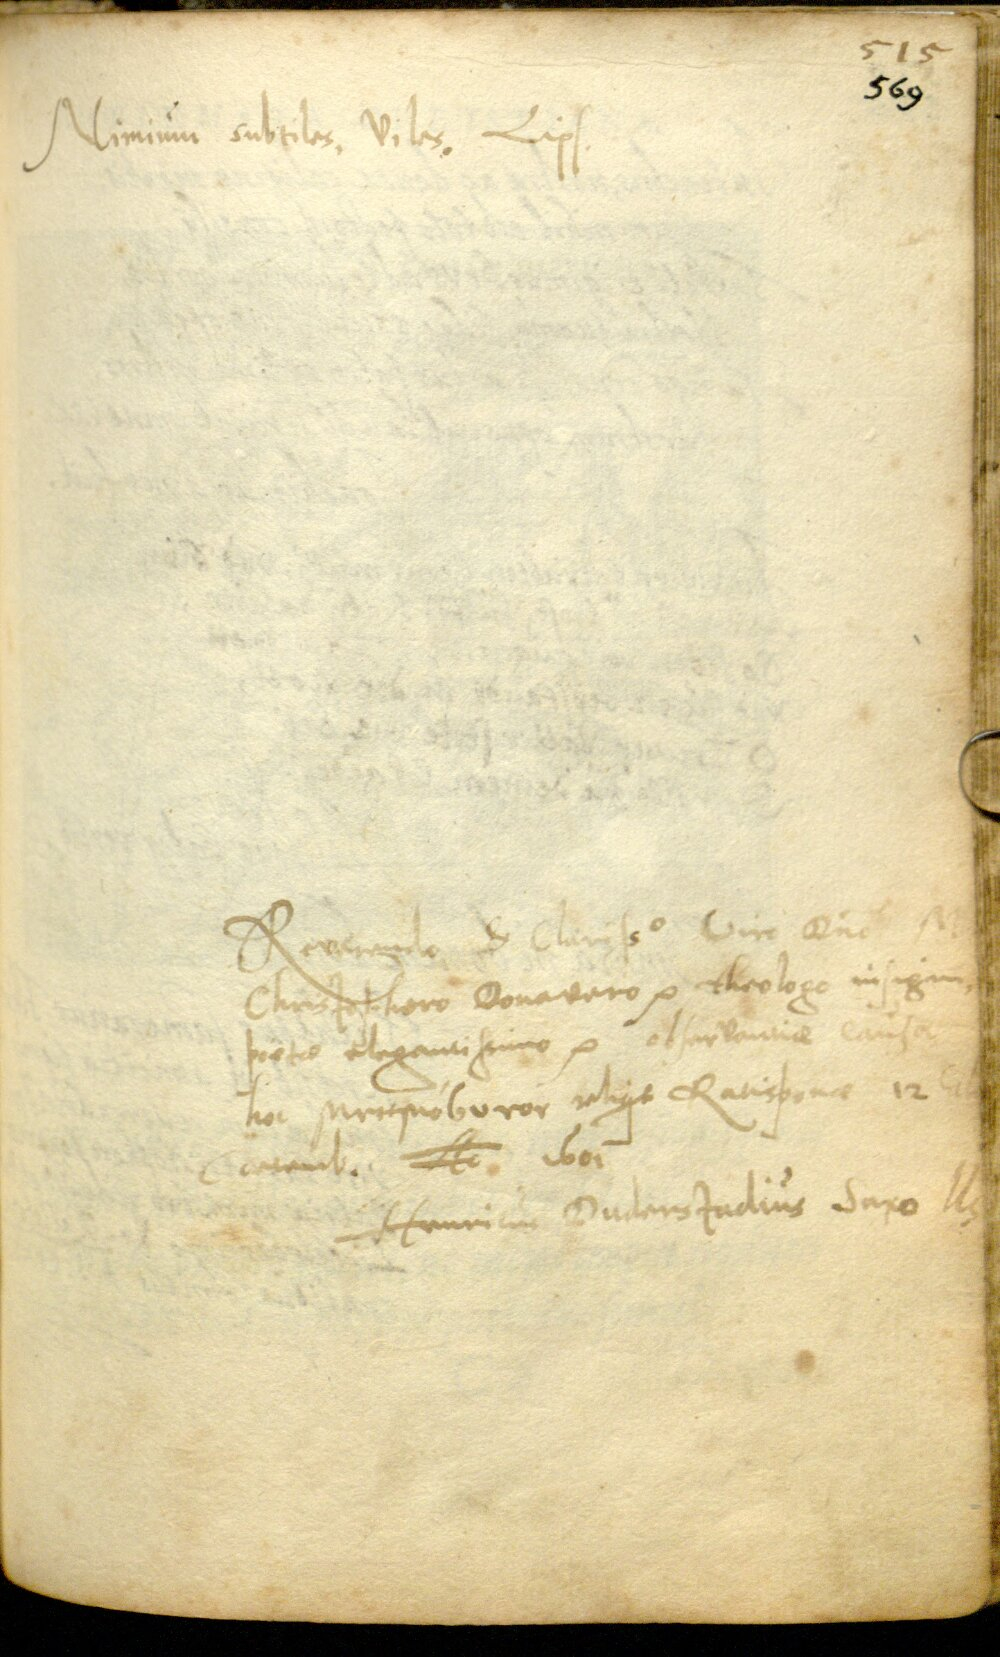 515
569
Nimium subtiles, Viles. Lips.
Reverendo & Clariss⁰ Viro Dno M.
Christophoro Donavero theologo insigni,
poëtæ elegantissimo observantiæ causa
hoc μνημόσυνον reliqit Ratisponæ 12
Ao. 1601
Henricus Duderstadius Saxo